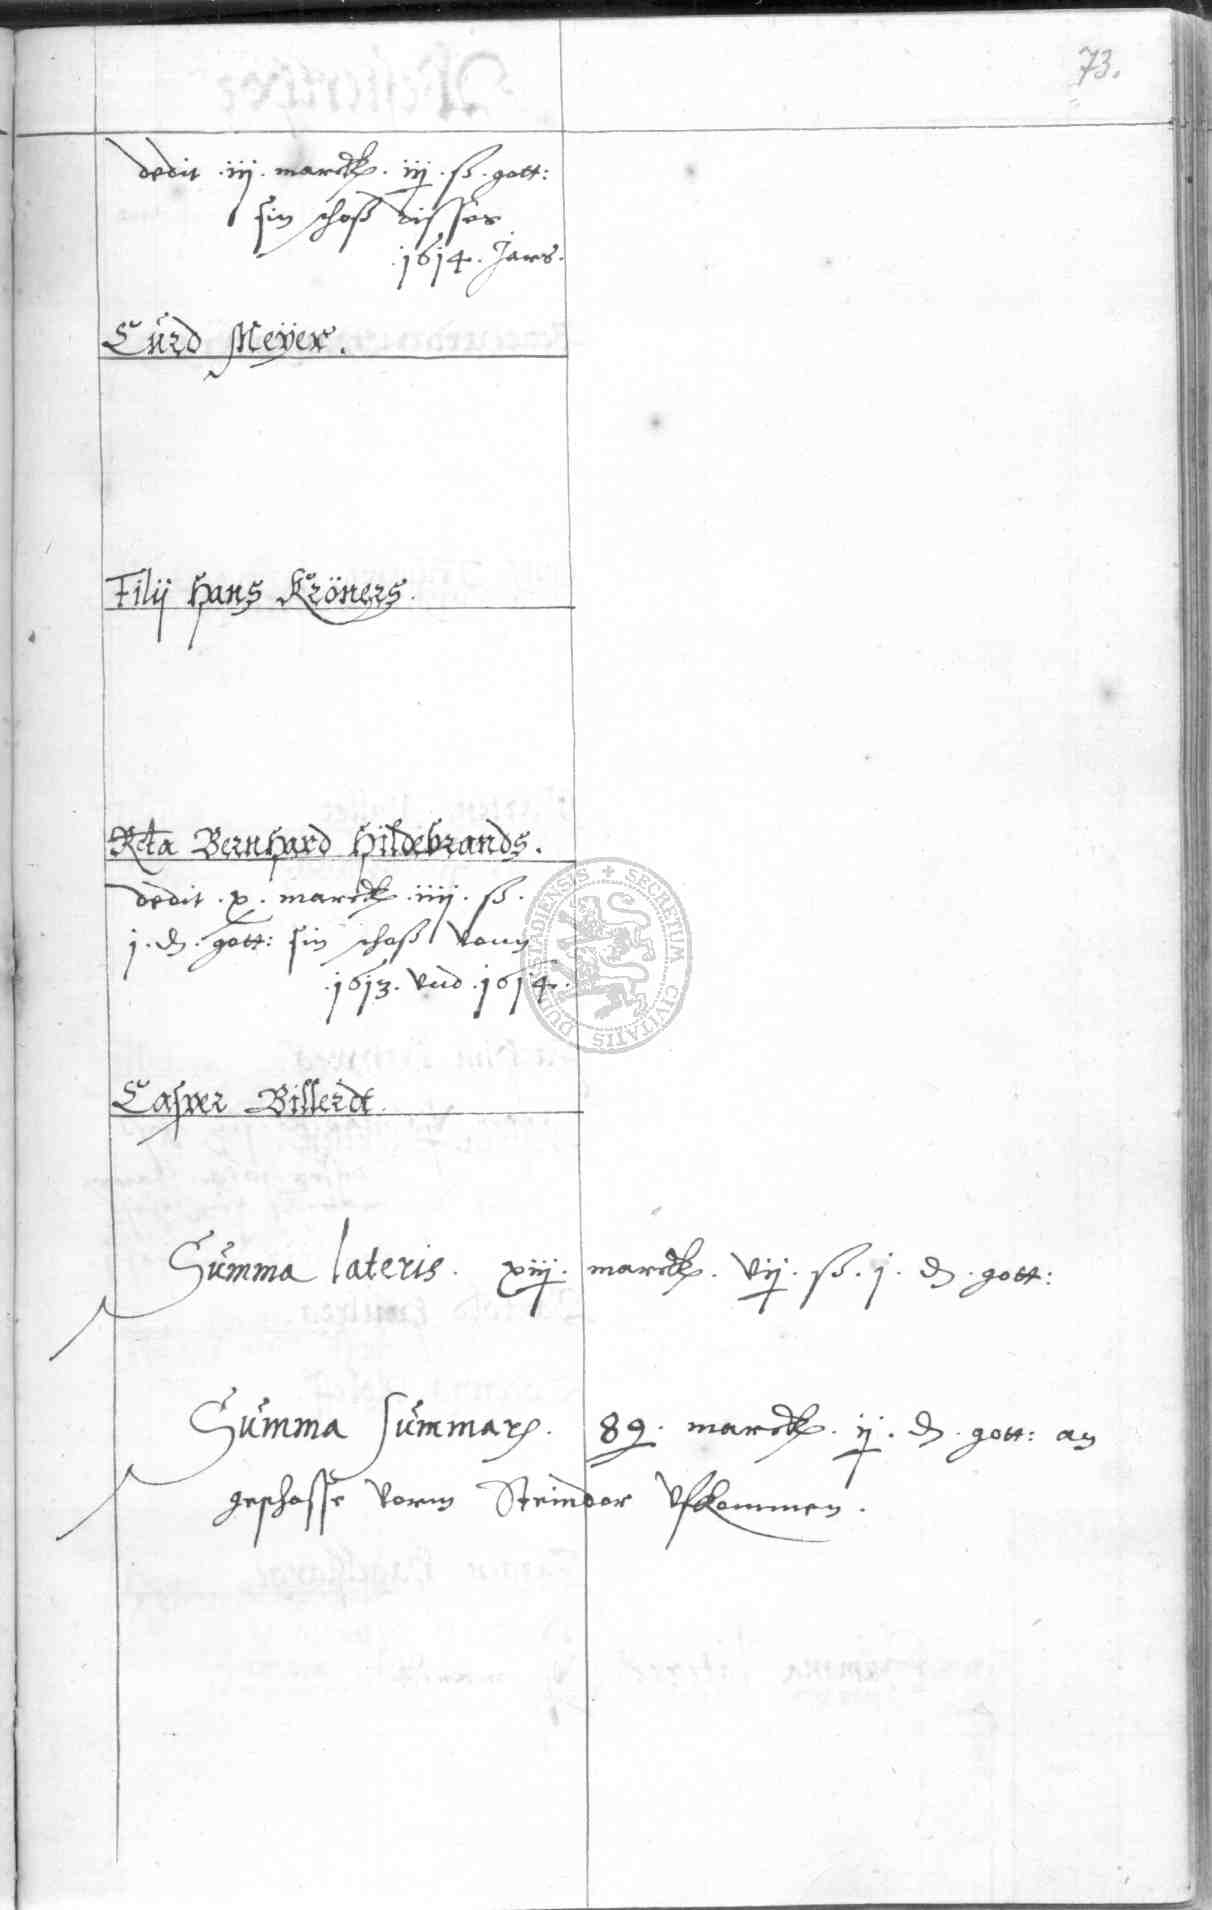 73.
dedit .iij. marck. iij. ß. gott:
sin schoß disses
.1614. Jars.
Curd Meÿer.
Filij Hans Kröners.
Rcta Bernhard Hildebrands.
dedit .x. marck .iiij. ß.
j. d. gott: sin schoß vonn
.1613. vnd .1614.
Casper Billerdt.
Summa lateris. xiij. marck. vij. ß. j. d. gott:
Summa summarum. 89. marck. ij. d. gott: an
geschosse vorm Steindor vfkommen.
SECRETUM CIVITATIS DUDERSTADIENSIS